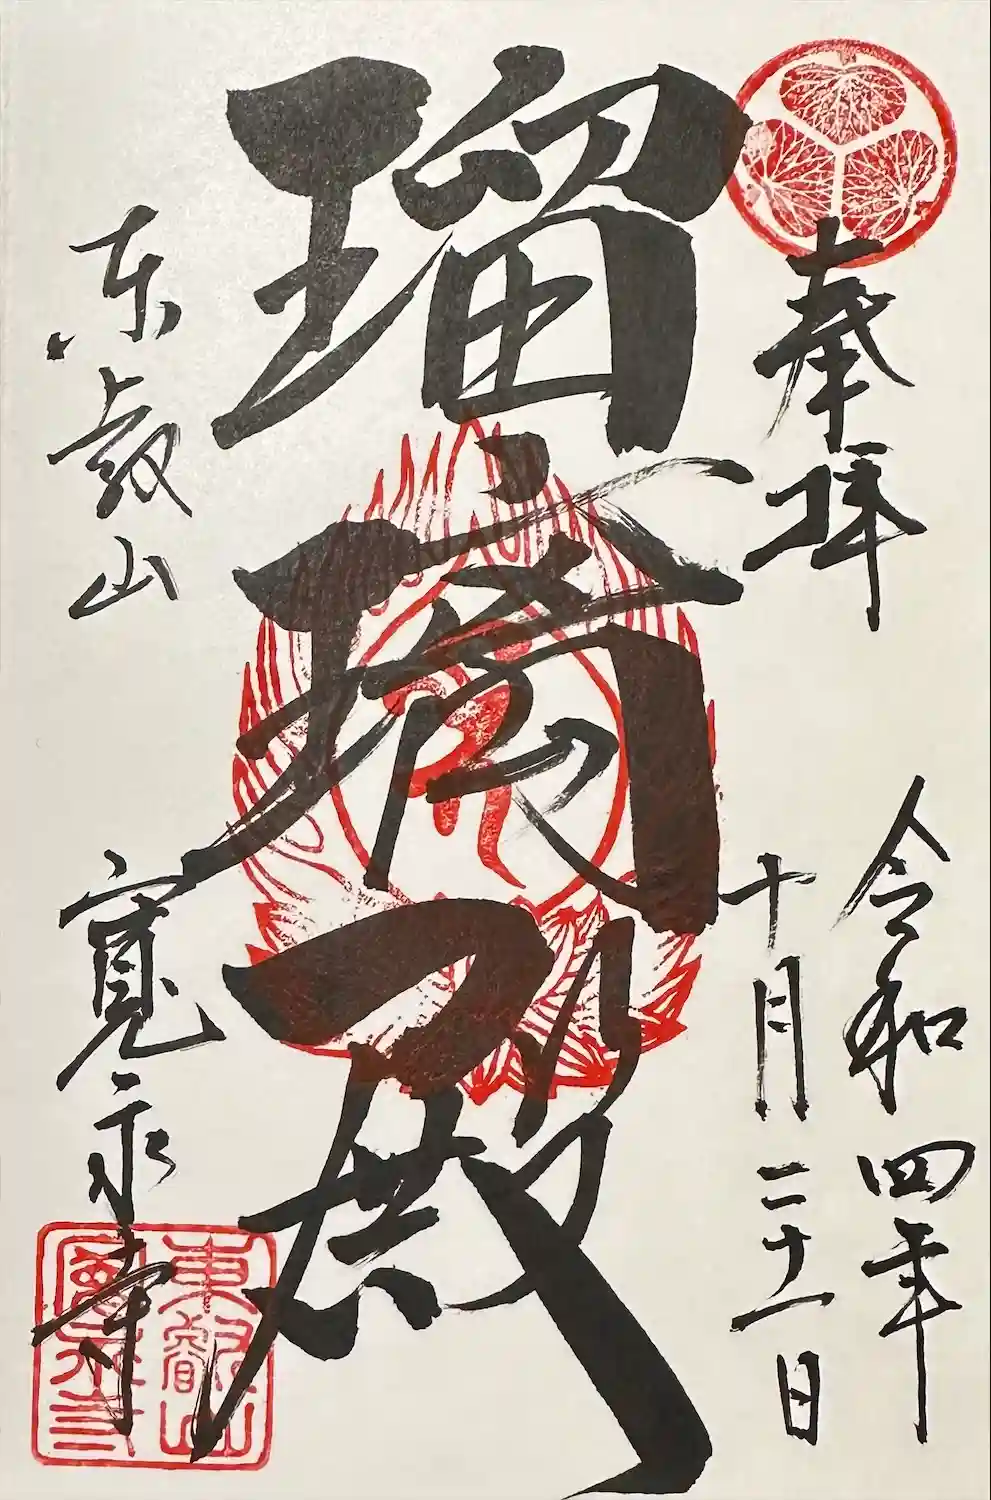 奉拝
令和四年
十月二十一日
瑠璃殿
东叡山
寛永寺
東叡山
寛永寺